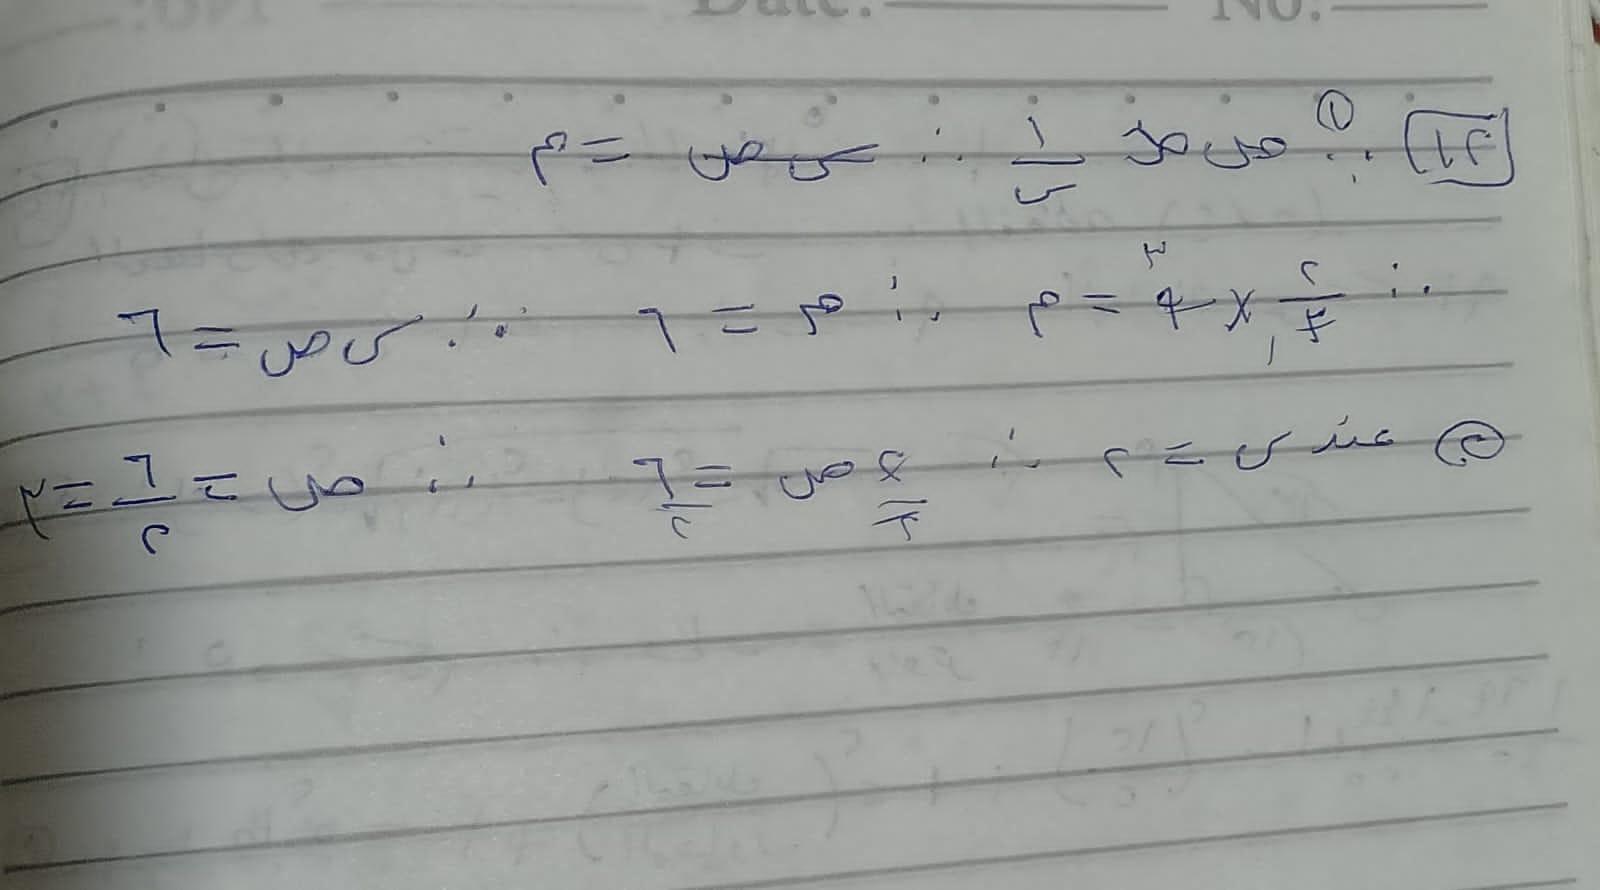 Date: No:
١٣ ① ∵ ص ∝ ١/س ∴ س ص = م
∴ ٢/٣ × ٩ ٣ = م ∴ م = ٦ ∴ س ص = ٦
② عند س = ٢ ∴ ٢ص/٢ = ٦/٢ ∴ ص = ٦/٢ = ٣